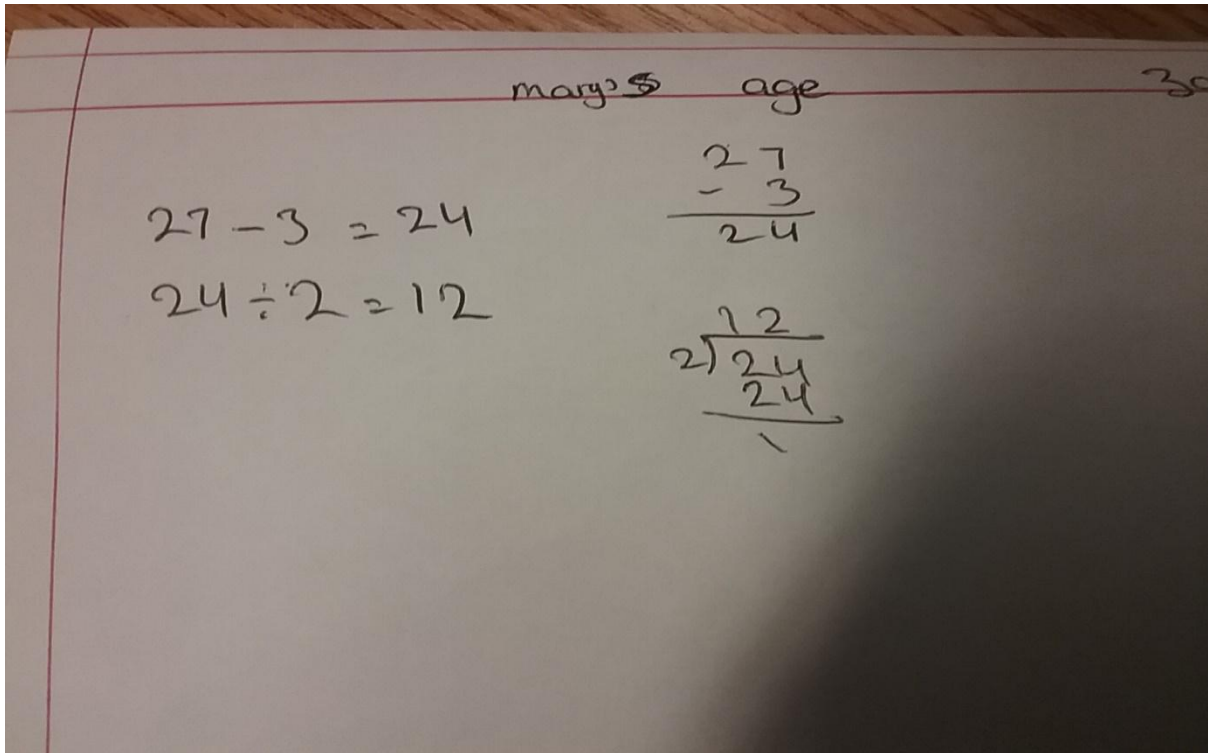 mary's age
27 - 3 = 24
24 ÷ 2 = 12
27
- 3
24
12
2) 24
24